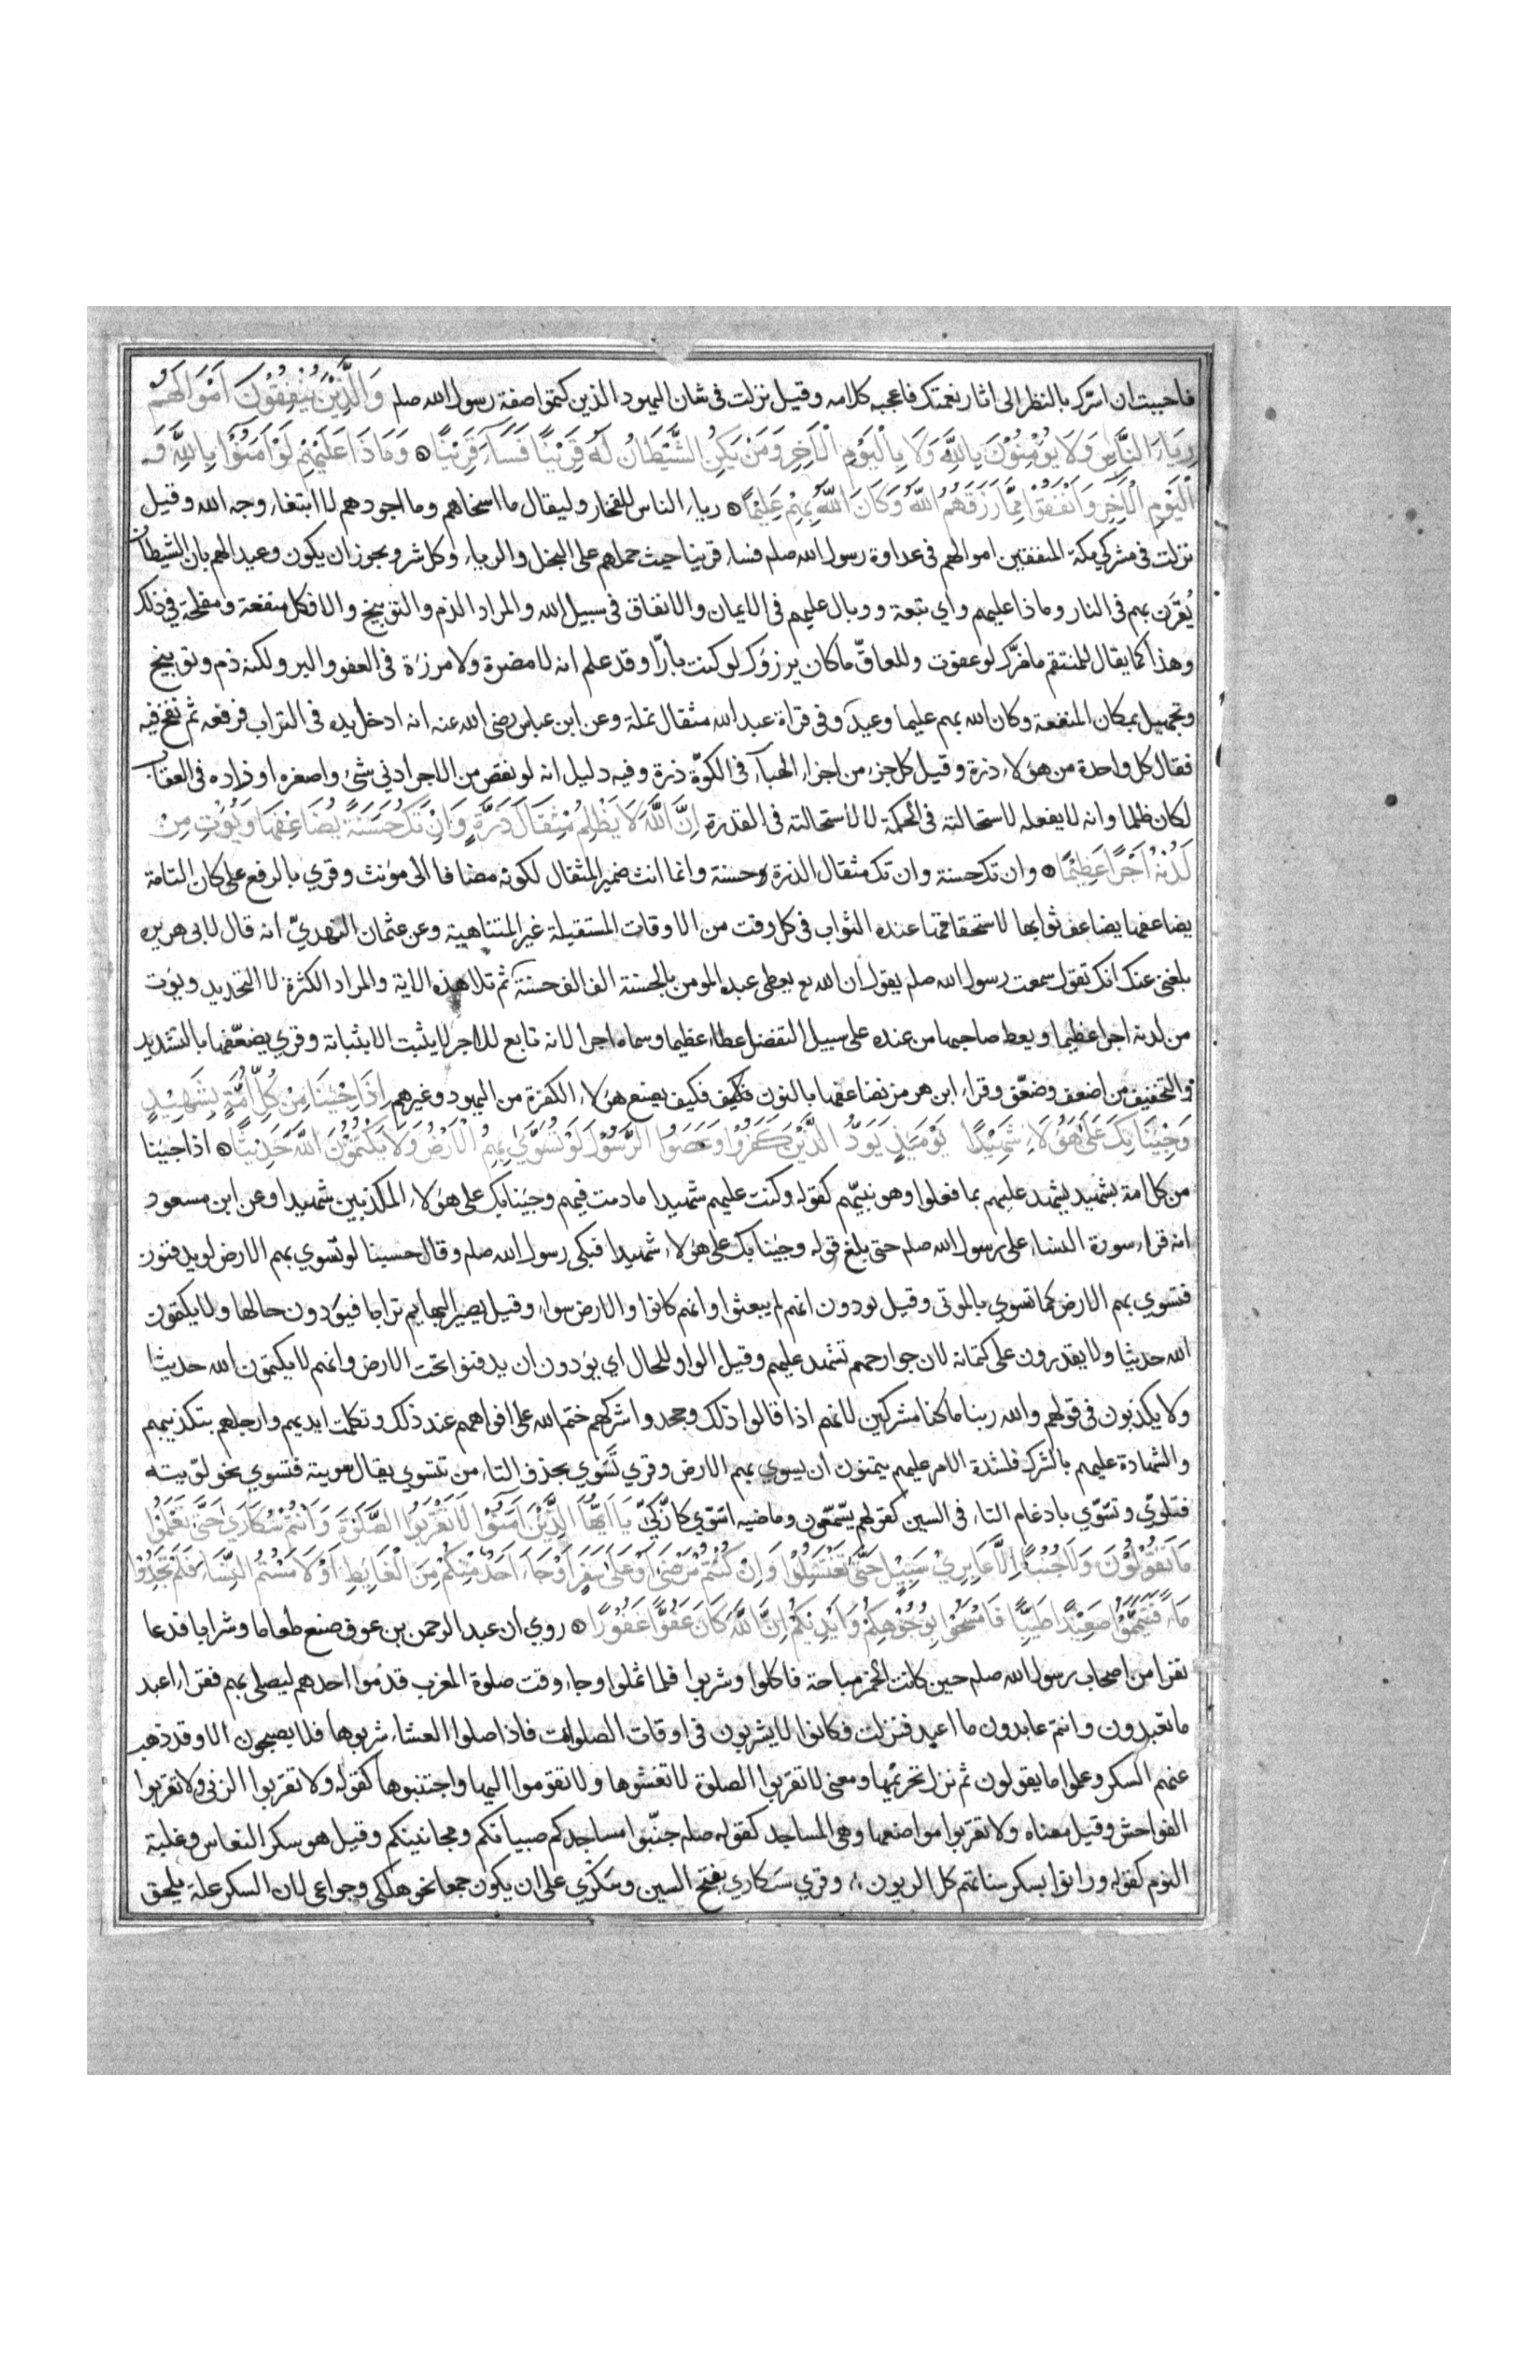 فاحببت ان اسّرك بالنظر الى اثار نعمتك فاعجبه كلامه وقيل نزلت فى شان اليهود الذين كتموا صفة رسول الله صلم وَالَّذِيْنَ يُنْفِقُوْنَ اَمْوَالَهُمْ
رِيَاءَ النَّاسِ وَلَا يُؤْمِنُوْنَ بِاللَّهِ وَلَا بِالْيَوْمِ الْاٰخِرِ وَمَنْ يَكُنِ الشَّيْطَانُ لَهُ قَرِيْنًا فَسَاءَ قَرِيْنًا وَمَاذَا عَلَيْهِمْ لَوْ اٰمَنُوْا بِاللَّهِ وَ
الْيَوْمِ الْاٰخِرِ وَاَنْفَقُوْا مِمَّا رَزَقَهُمُ اللَّهُ وَكَانَ اللَّهُ بِهِمْ عَلِيْمًا رياء الناس للفخار وليقال ما اسخاهم وما اجودهم لا ابتغاء وجه الله وقيل
نزلت فى مشركي مكة المنفقين اموالهم فى عداوة رسول الله صلم فساء قرينا حيث حملهم على البخل والرياء وكل شر ويجوز ان يكون وعيدا لهم بان الشيطان
يُقرَن بهم فى النار وماذا عليهم واي تبعة ووبال عليهم فى الايمان والانفاق فى سبيل الله والمراد الذم والتوبيخ والا فكل منفعة ومفلحة في ذلك
وهذا كما يقال للمنتقم ما ضرّك لو عفوت وللعاقّ ما كان يرزؤك لو كنت بارّا وقد علم انه لا مضرة ولا مرزئة فى العفو والبر ولكنه ذم وتوبيخ
وتجهيل بمكان المنفعة وكان الله بهم عليما وعيد وفى قراة عبد الله مثقال نملة وعن ابن عباس رضى الله عنه انه ادخل يده فى التراب فرفعه ثم نفخ فيه
فقال كل واحدة من هؤلاء ذرة وقيل كل جزء من اجزاء الهباء فى الكوّة ذرة وفيه دليل انه لو نقص من الاجر ادنى شئ واصغره او زاده فى العقاب
لكان ظلما وانه لا يفعله لاستحالته فى الحكمة لا لاستحالته فى القدرة اِنَّ اللَّهَ لَا يَظْلِمُ مِثْقَالَ ذَرَّةٍ وَاِنْ تَكُ حَسَنَةً يُضَاعِفْهَا وَيُؤْتِ مِنْ
لَدُنْهُ اَجْرًا عَظِيْمًا وان تك حسنة وان تك مثقال الذرة حسنة وانما انث ضمير المثقال لكونه مضافا الى مؤنث وقري بالرفع على كان التامة
يضاعفها يضاعف ثوابها لاستحقاقها عنده الثواب فى كل وقت من الاوقات المستقبلة غير المتناهية وعن عثمان النهديّ انه قال لابى هريره
بلغنى عنك انك تقول سمعت رسول الله صلم يقول ان الله يعطى عبده المومن بالحسنة الف الف حسنة ثم تلا هذه الاية والمراد الكثرة لا التحديد ويؤت
من لدنه اجرا عظيما ويعط صاحبها من عنده على سبيل التفضل عطاء عظيما وسماه اجرا لانه تابع للاجر لا يثبت الا بثباته وقري يضعّفها بالتشديد
والتخفيف من اضعف وضعّف وقراء ابن هرمز نضاعفها بالنون فكيف فكيف يصنع هؤلاء الكفرة من اليهود وغيرهم اِذَا جِئْنَا مِنْ كُلِّ اُمَّةٍ بِشَهِيْدٍ
وَجِئْنَا بِكَ عَلٰى هٰؤُلَاءِ شَهِيْدًا يَوْمَئِذٍ يَوَدُّ الَّذِيْنَ كَفَرُوْا وَعَصَوُا الرَّسُوْلَ لَوْ تُسَوّٰي بِهِمُ الْاَرْضُ وَلَا يَكْتُمُوْنَ اللَّهَ حَدِيْثًا اذا جئنا
من كل امة بشهيد يشهد عليهم بما فعلوا وهو نبيّهم كقوله وكنت عليهم شهيدا ما دمت فيهم وجئنا بك على هؤلاء المكذبين شهيدا وعن ابن مسعود
انه قراء سورة النساء على رسول الله صلم حتى بلغ قوله وجئنا بك على هؤلاء شهيدا فبكى رسول الله صلم وقال حسبنا لو تسوي بهم الارض لو يدفنون
فتسوي بهم الارض كما تسوي بالموتى وقيل يودون انهم لم يبعثوا وانهم كانوا والارض سواء وقيل يصير البهايم ترابا فيودون حالها ولا يكتمون
الله حديثا ولا يقدرون على كتمانه لان جوارحهم تشهد عليهم وقيل الواو للحال اي يودون ان يدفنوا تحت الارض وانهم لا يكتمون الله حديثا
ولا يكذبون فى قولهم والله ربنا ما كنا مشركين لانهم اذا قالوا ذلك وجحدوا شركهم ختم الله على افواههم عند ذلك وتكلمت ايديهم وارجلهم بتكذيبهم
والشهادة عليهم بالشرك فلشدة الامر عليهم يتمنون ان يسوي بهم الارض وقري تَسَوي بحذف التاء من تتسوي يقال سويته فتسوي نحو لوّيته
فتلوّي وتسّوّي بادغام التاء فى السين كقولهم يسّمّعون وماضيه اسّوّي كازّكيّ يَا اَيُّهَا الَّذِيْنَ اٰمَنُوْا لَا تَقْرَبُوا الصَّلٰوةَ وَاَنْتُمْ سُكَارٰي حَتّٰى تَعْلَمُوْا
مَا تَقُوْلُوْنَ وَلَا جُنُبًا اِلَّا عَابِرِيْ سَبِيْلٍ حَتّٰى تَغْتَسِلُوْا وَاِنْ كُنْتُمْ مَرْضٰى اَوْ عَلٰى سَفَرٍ اَوْ جَاءَ اَحَدٌ مِنْكُمْ مِنَ الْغَايِطِ اَوْ لَامَسْتُمُ النِّسَاءَ فَلَمْ تَجِدُوْا
مَاءً فَتَيَمَّمُوْا صَعِيْدًا طَيِّبًا فَامْسَحُوْا بِوُجُوْهِكُمْ وَاَيْدِيْكُمْ اِنَّ اللَّهَ كَانَ عَفُوًّا غَفُوْرًا روي ان عبد الرحمن بن عوف صنع طعاما وشرابا فدعا
نفرا من اصحاب رسول الله صلم حين كانت الخمر مباحة فاكلوا وشربوا فلما ثملوا وجاء وقت صلوة المغرب قدموا احدهم ليصلى بهم فقراء اعبد
ما تعبدون وانتم عابدون ما اعبد فنزلت فكانوا لا يشربون فى اوقات الصلوات فاذا صلوا العشاء شربوها فلا يصبحون الا وقد ذهب
عنهم السكر وعلموا ما يقولون ثم نزل تحريمها ومعنى لا تقربوا الصلوة لا تغشوها ولا تقوموا اليها واجتنبوها كقوله ولا تقربوا الزنى ولا تقربوا
الفواحش وقيل معناه ولا تقربوا مواضعها وهى المساجد كقوله صلم جنّبوا مساجدكم صبيانكم ومجانينكم وقيل هو سكر النعاس وغلبة
النوم كقوله ورانوا بسكر سناتهم كل الريون وقري سَكاري بفتح السين وسَكْري على ان يكون جمعا نحو هلكى وجوعى لان السكر علة يلحق